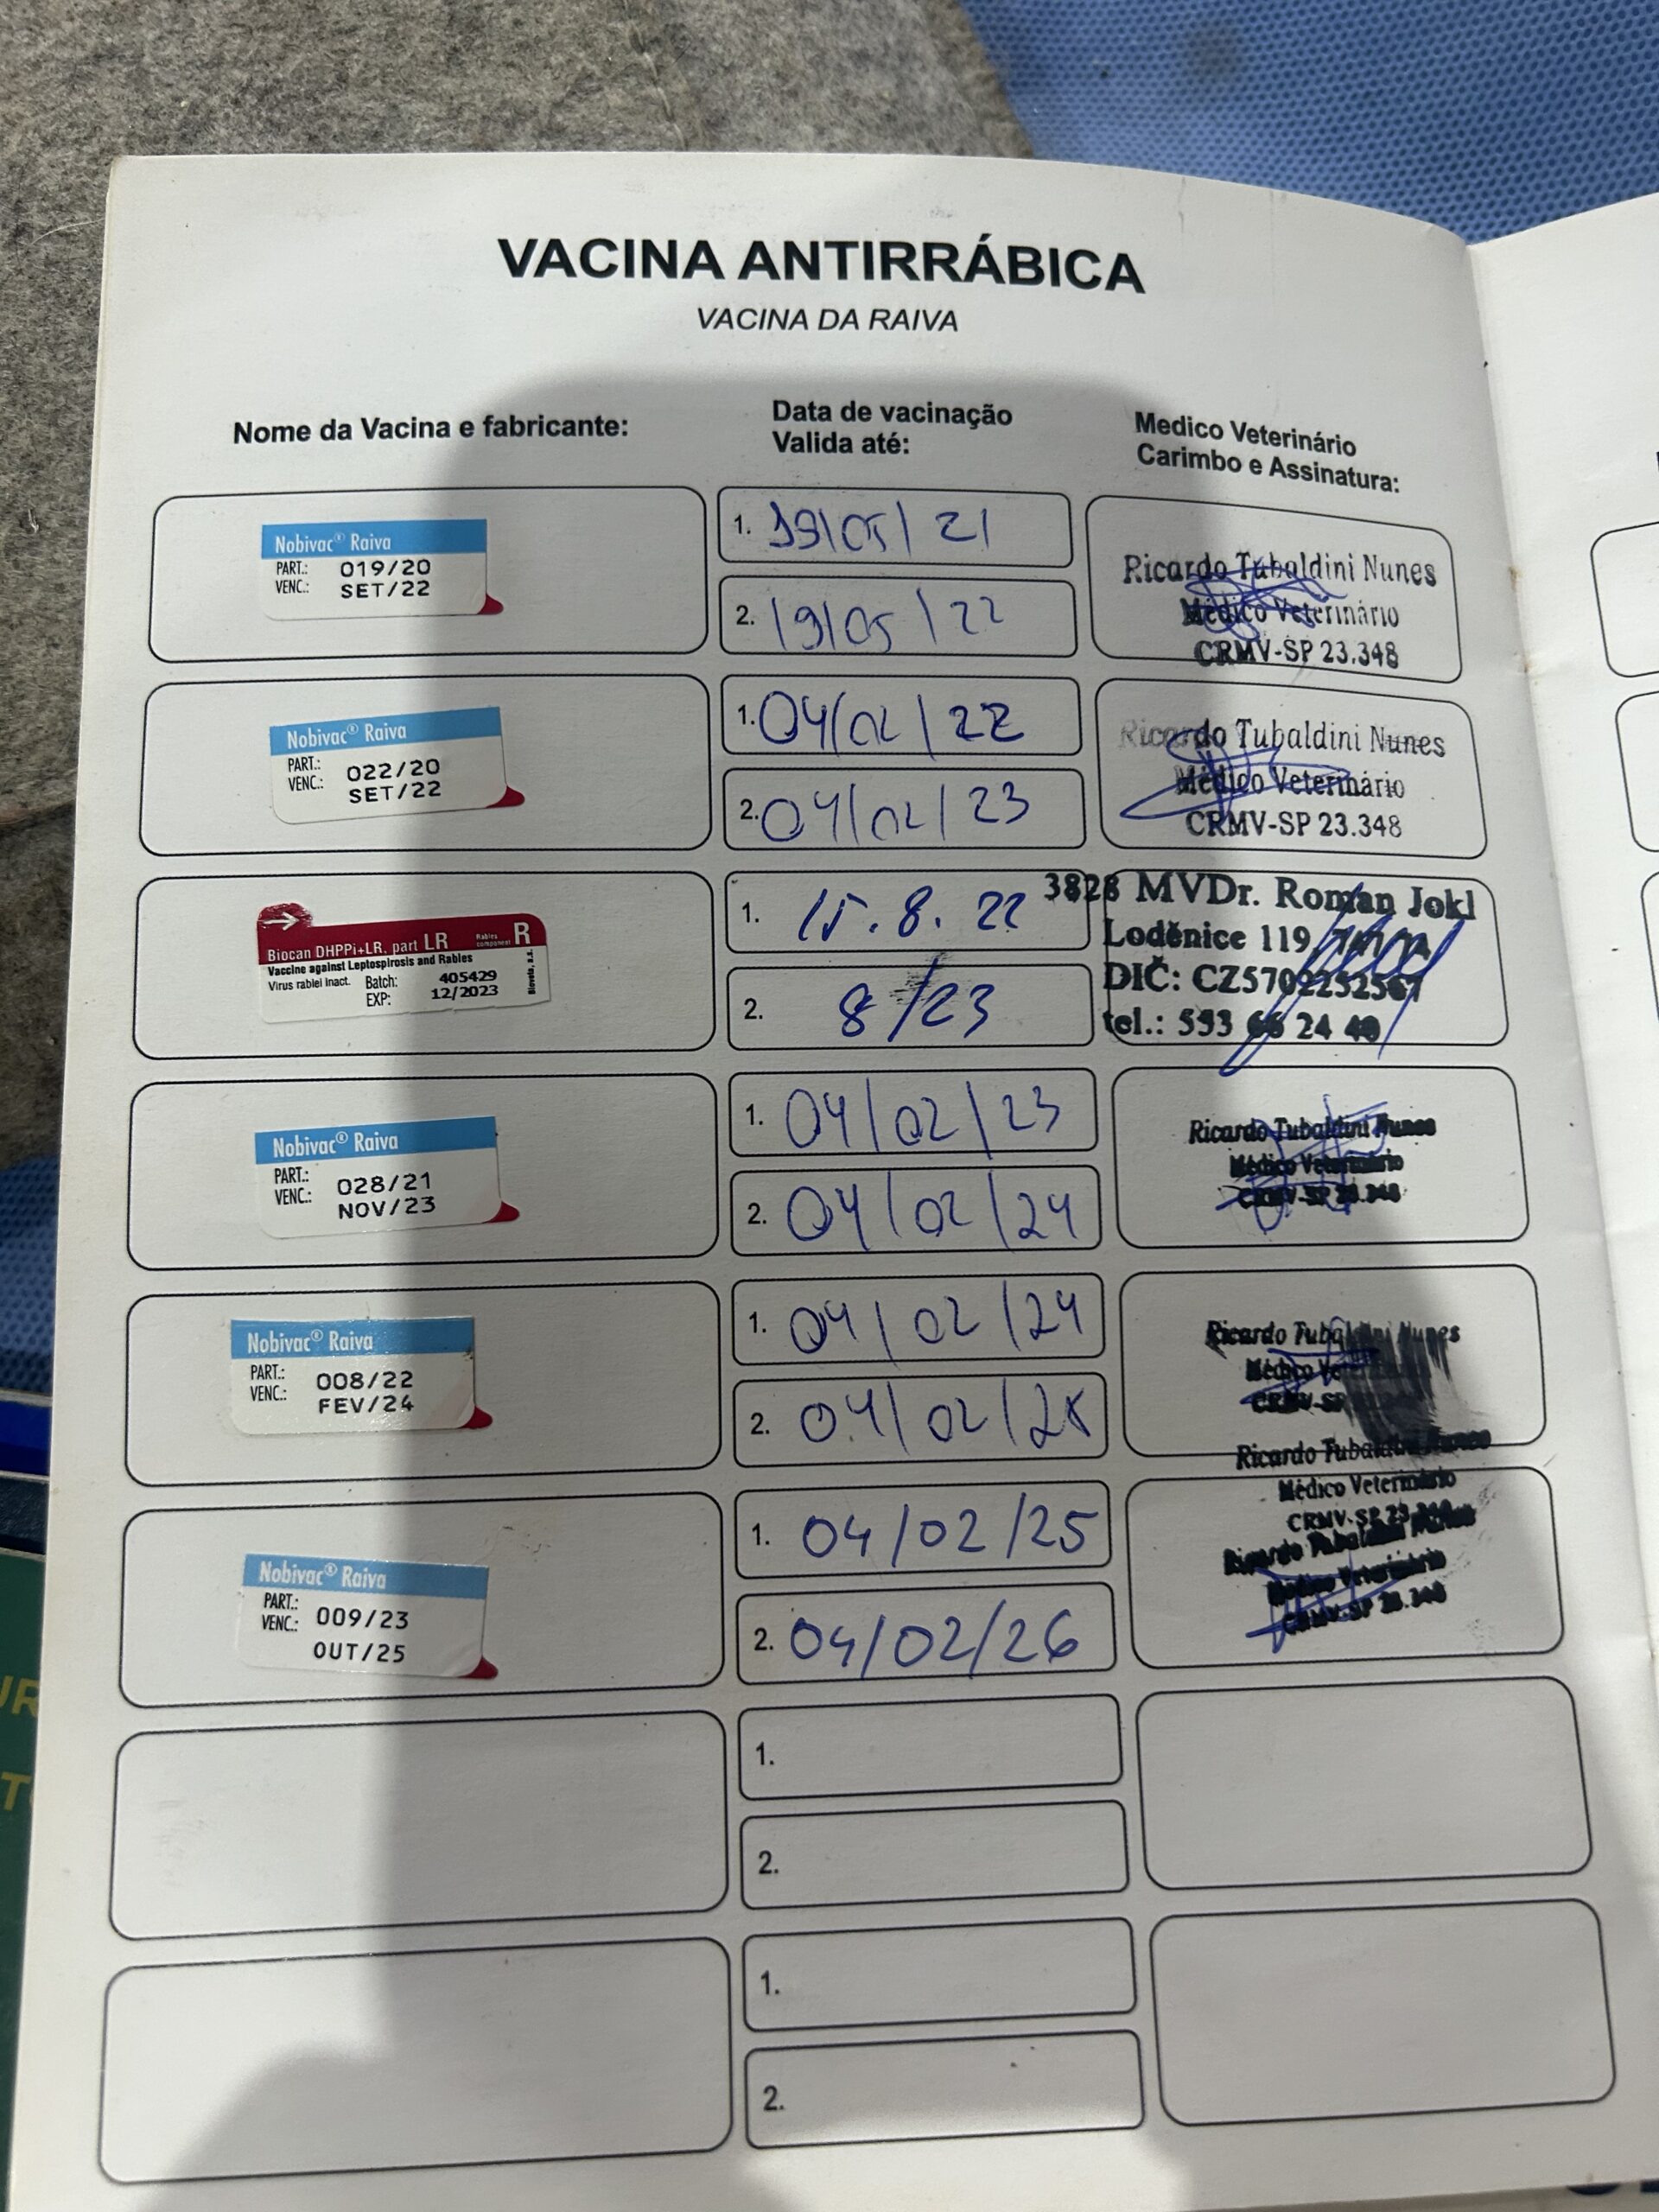 VACINA ANTIRRÁBICA
VACINA DA RAIVA
Nome da Vacina e fabricante:
Data de vacinação
Valida até:
Medico Veterinário
Carimbo e Assinatura:
Nobivac® Raiva
PART.: 019/20
VENC.: SET/22
1. 19/05/21
2. 19/05/22
Ricardo Tubaldini Nunes
Médico Veterinário
CRMV-SP 23.348
Nobivac® Raiva
PART.: 022/20
VENC.: SET/22
1. 04/02/22
2. 04/02/23
Ricardo Tubaldini Nunes
Médico Veterinário
CRMV-SP 23.348
Biocan DHPPi+LR, part LR Rabies component R
Vaccine against Leptospirosis and Rabies
Virus rabiei inact. Batch: 405429
EXP: 12/2023
Bioveta, a.s.
1. 15.8.22
2. 8/23
3828 MVDr. Roman Jokl
Loděnice 119
DIČ: CZ5702252567
tel.: 553 66 24 40
Nobivac® Raiva
PART.: 028/21
VENC.: NOV/23
1. 04/02/23
2. 04/02/24
Ricardo Tubaldini Nunes
Médico Veterinário
CRMV-SP 23.348
Nobivac® Raiva
PART.: 008/22
VENC.: FEV/24
1. 04/02/24
2. 04/02/25
Ricardo Tubaldini Nunes
Médico
CRMV-SP
Nobivac® Raiva
PART.: 009/23
VENC.: OUT/25
1. 04/02/25
2. 04/02/26
Ricardo Tubaldini Nunes
Médico Veterinário
CRMV-SP 23.348
Ricardo Tubaldini Nunes
Médico Veterinário
CRMV-SP 23.348
1.
2.
1.
2.